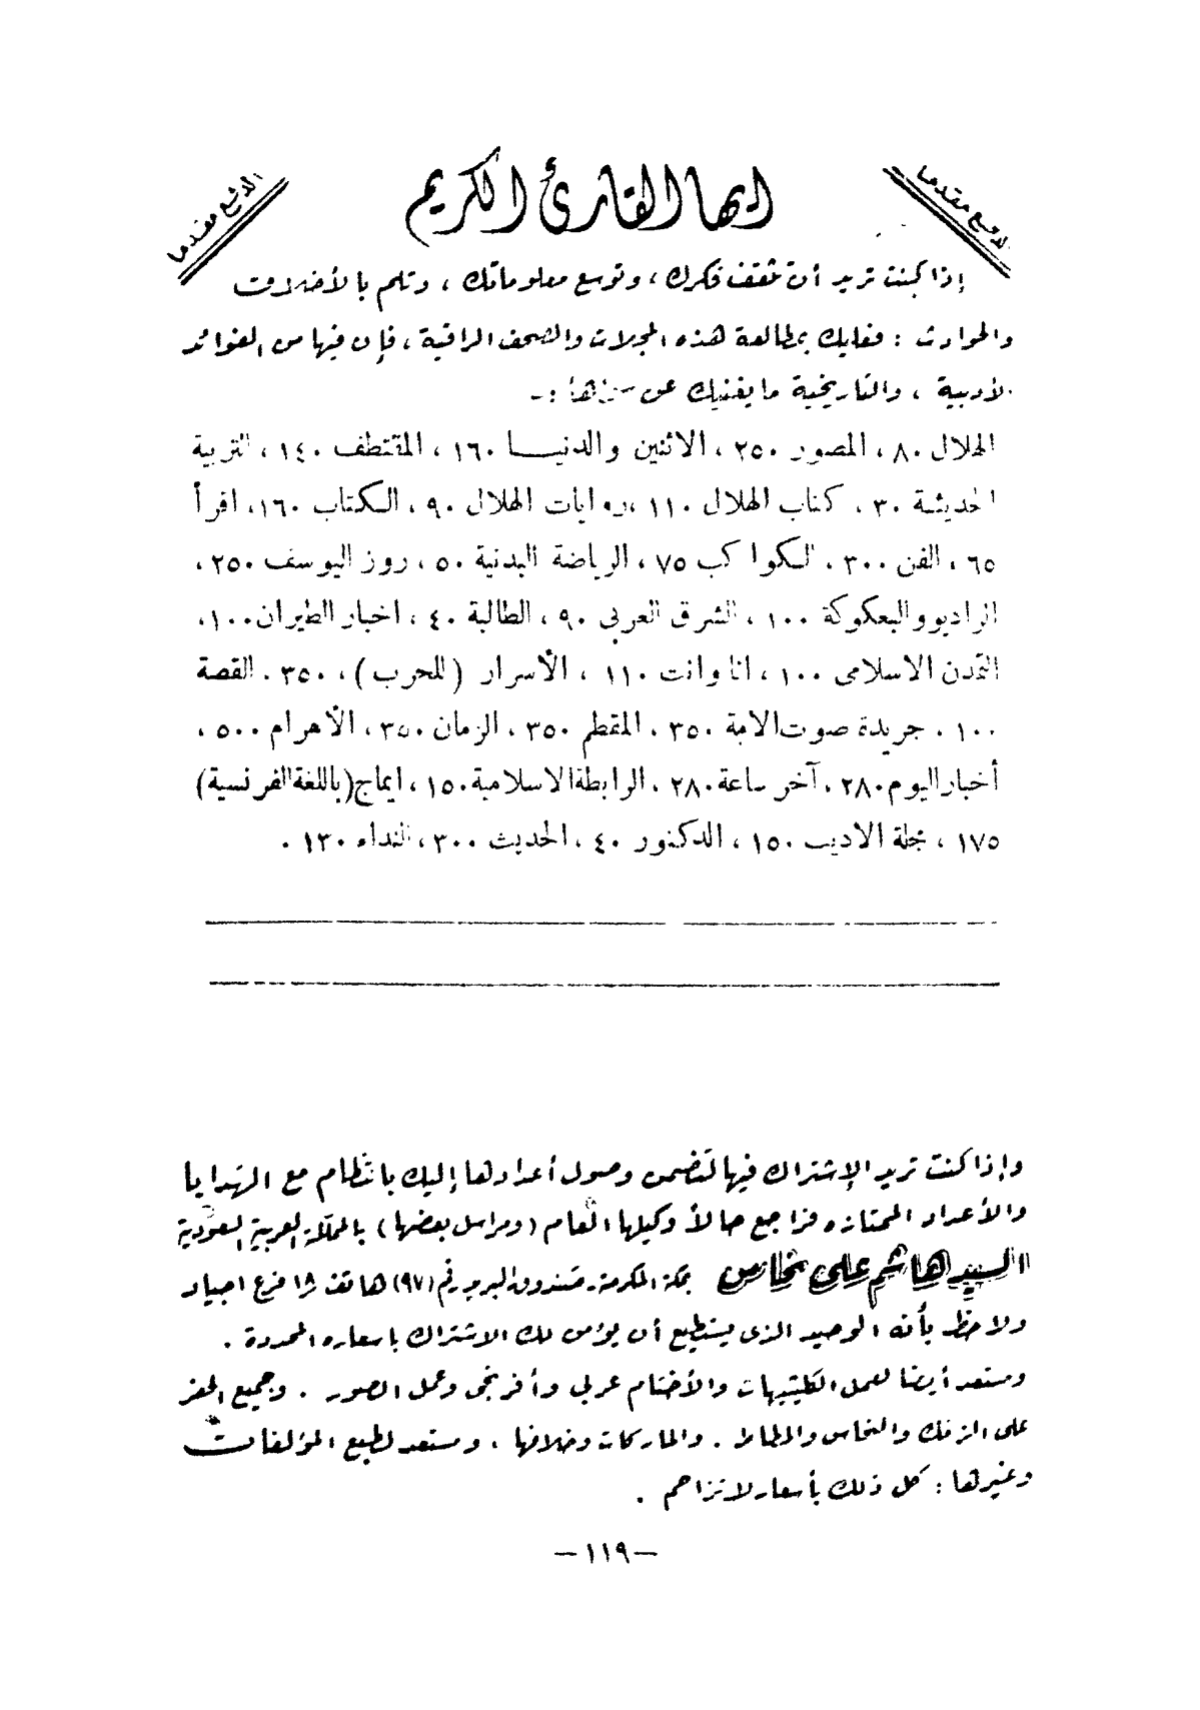 الدفع مقدما
ايها القارئ الكريم
الدفع مقدما
إذا كنت تريد أن تثقف فكرك ، وتوسع معلوماتك ، وتلم بالأخلاق
والحوادث : فعليك بمطالعة هذه المجلات والصحف الراقية ، فإن فيها من الفوائد
الأدبية ، والتاريخية ما يغنيك عن :ـ
الهلال ٨٠ ، المصور ٢٥٠ ، الاثنين والدنيـــا ١٦٠ ، المقتطف ١٤٠ ، التربية
الحديثة ٣٠ ، كتاب الهلال ١١٠ ، روايات الهلال ٩٠ ، الكتاب ١٦٠ ، اقرأ
٦٥ ، الفن ٣٠٠ ، الكواكب ٧٥ ، الرياضة البدنية ٥٠ ، روز اليوسف ٢٥٠ ،
الراديو والبعكوكة ١٠٠ ، الشرق العربى ٩٠ ، الطالبة ٤٠ ، اخبار الطيران ١٠٠ ،
التمدن الاسلامى ١٠٠ ، انا وانت ١١٠ ، الأسرار (للحرب) ، ٣٥٠ . القصة
١٠٠ . جريدة صوت الامة ٣٥٠ . المقطم ٣٥٠ . الزمان ٣٥٠ ، الأهرام ٥٠٠ ،
أخبار اليوم ٢٨٠ . آخر ساعة ٢٨٠ . الرابطة الاسلامية ١٥٠ ، ايماج (باللغة الفرنسية)
١٧٥ ، مجلة الاديب ١٥٠ ، الدكتور ٤٠ ، الحديث ٣٠٠ ، النداء ١٣٠ .
وإذا كنت تريد الإشتراك فيها لتضمن وصول أعدادها إليك بانتظام مع الهدايا
والأعداد الممتازه فراجع حالاً وكيلها العام (ومراسل بعضها) بالمملكة العربية السعودية
السيد هاشم على نحاس بمكة المكرمة ـ صندوق البريد رقم (٩٧) هاتف ١٨ فرع اجياد
ولاحظ بأنه الوحيد الذى يستطيع أن يؤمن لك الاشتراك باسعاره المحددة .
ومستعد أيضا لعمل الكليشيهات والأختام عربي وأفرنجى وعمل الصور . وجميع الحفر
على الزنك والنحاس والمطاط . والماركات وخلافها ، ومستعد لطبع المؤلفات
وغيرها : كل ذلك بأسعار لا تزاحم .
— ١١٩ —